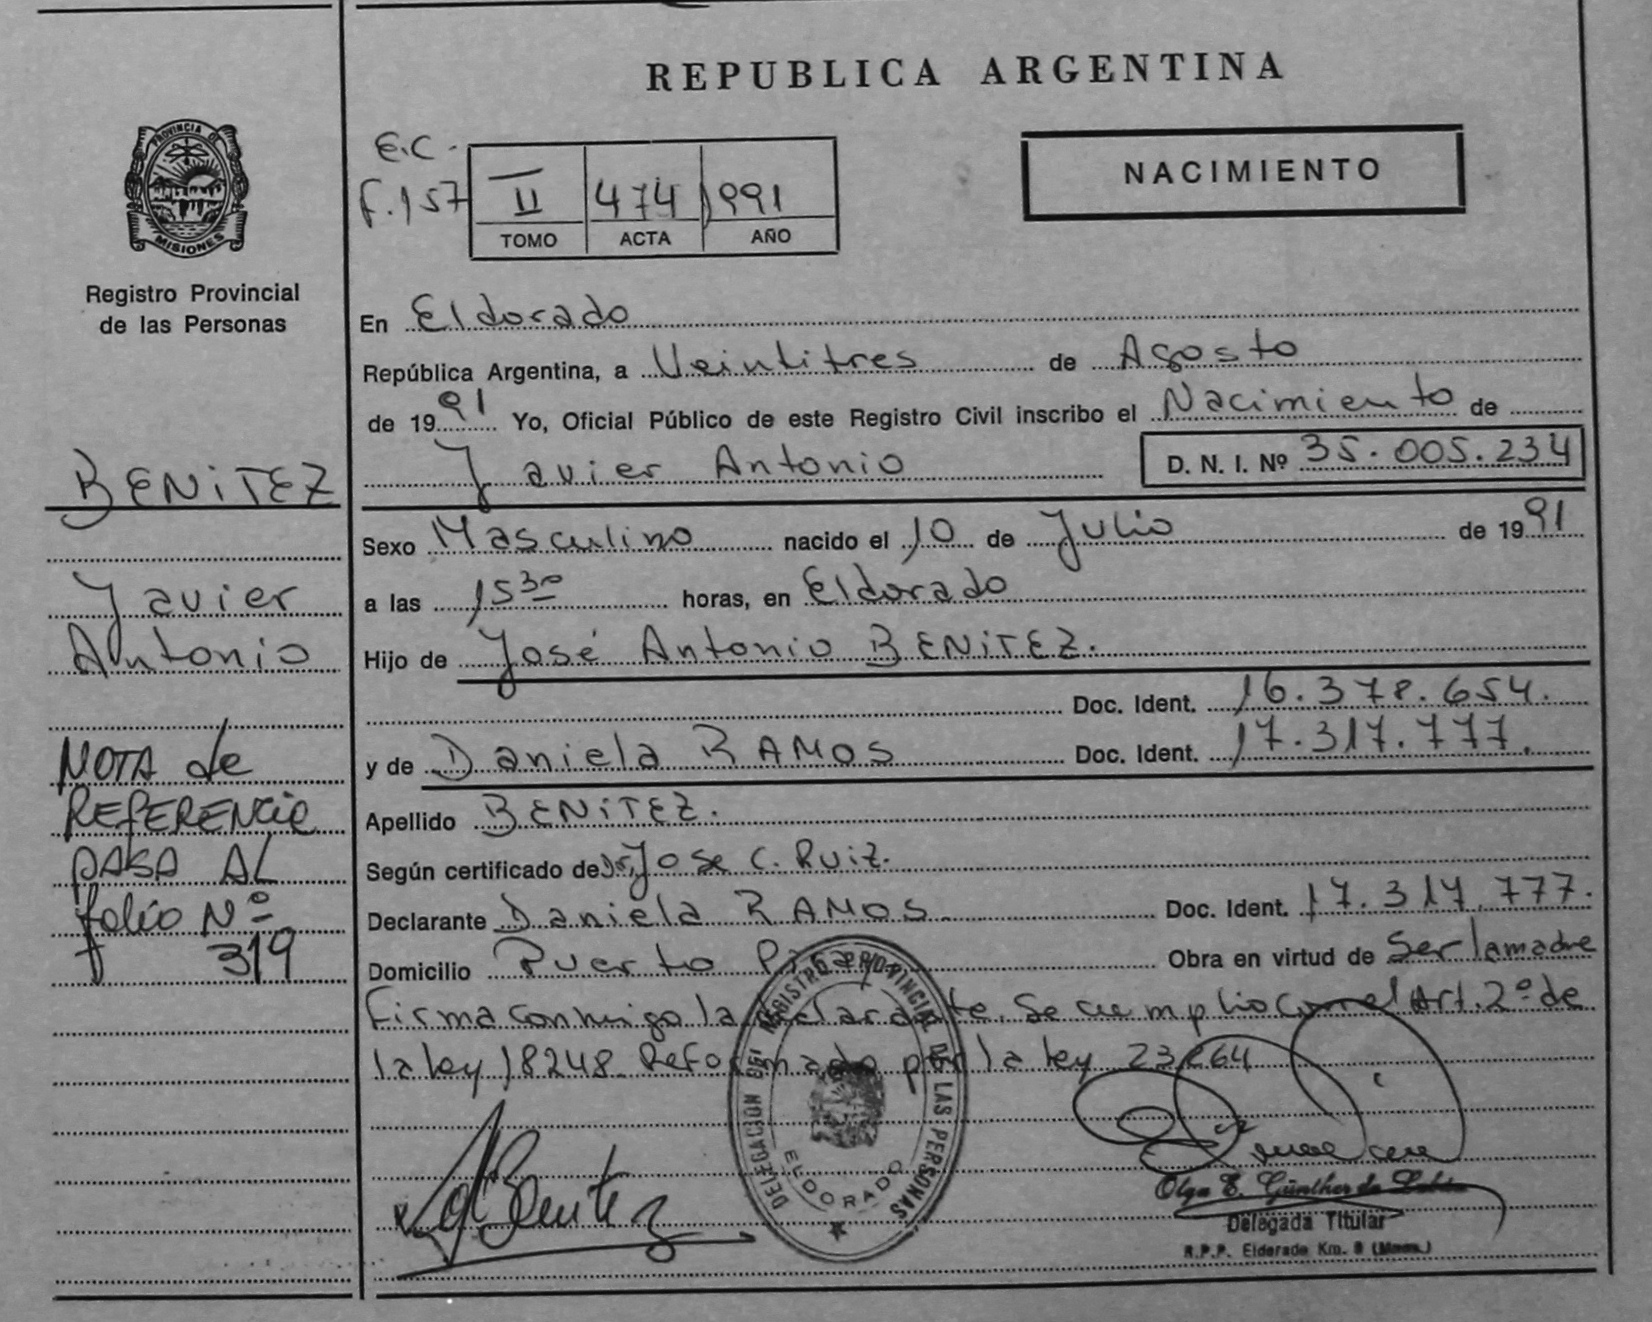 REPUBLICA ARGENTINA
PROVINCIA DE
MISIONES
Registro Provincial
de las Personas
E.C.
F.157
II 474 1991
TOMO ACTA AÑO
NACIMIENTO
En Eldorado
República Argentina, a Veintitres de Agosto
de 1991 Yo, Oficial Público de este Registro Civil inscribo el Nacimiento de
Javier Antonio D. N. I. Nº 35.005.234
Sexo Masculino nacido el 10 de Julio de 1991
a las 15 30 horas, en Eldorado
Hijo de José Antonio BENiTEZ.
Doc. Ident. 16.378.654.
y de Daniela RAMOS Doc. Ident. 17.317.777.
Apellido BENiTEZ.
Según certificado de Dr. Jose C. Ruiz.
Declarante Daniela RAMOS Doc. Ident. 17.317.777.
Domicilio Puerto Obra en virtud de Ser la madre
Firma conmigo la declarante. Se cumplio con el Art. 2º de
la ley 18248 Reformado por la ley 23264
BENiTEZ
Javier
Antonio
NOTA de
REFERENCIA
PASA AL
folio Nº
319
Benitez
DELEGACION DEL REGISTRO PROVINCIAL DE LAS PERSONAS
ELDORADO
Olga E. Günther de
Delegada Titular
R.P.P. Eldorado Km. 8 (Mnes.)